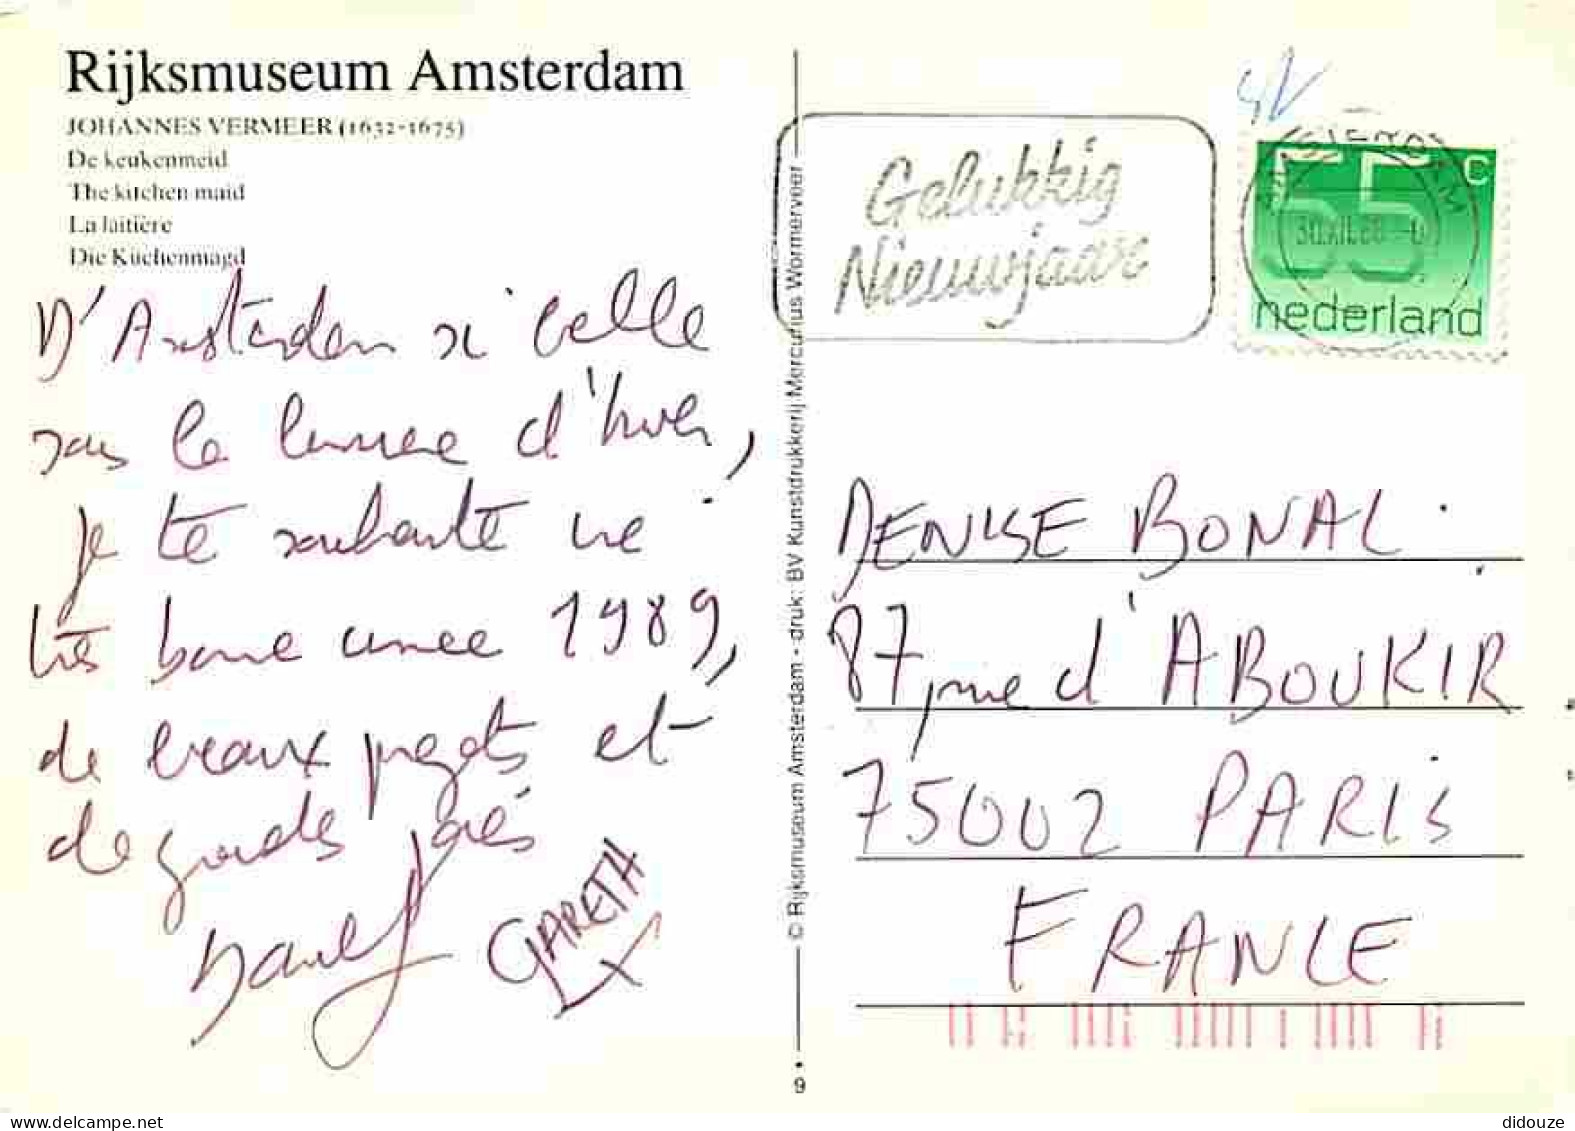 Rijksmuseum Amsterdam
JOHANNES VERMEER (1632-1675)
De keukenmeid
The kitchen maid
La laitière
Die Küchenmagd
D'Amsterdam si belle
sous la lumière d'hiver,
je te souhaite une
très bonne année 1989,
de beaux projets et
de grandes joies
GARETH
© Rijksmuseum Amsterdam - druk: BV Kunstdrukkerij Mercurius Wormerveer
9
Gelukkig
Nieuwjaar
AMSTERDAM
30.XII.88
55 c
nederland
DENISE BONAL
87, rue d'ABOUKIR
75002 PARIS
FRANCE
didouze